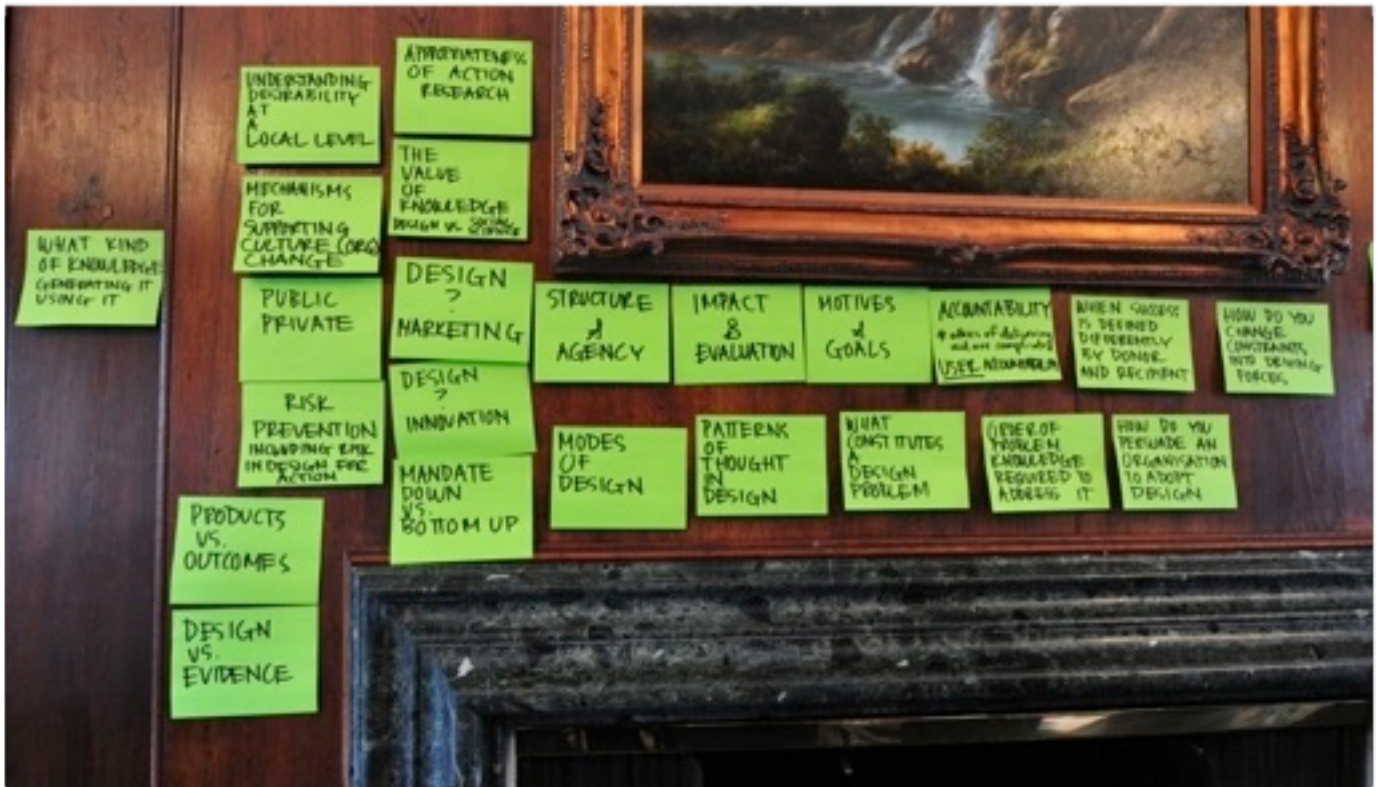 WHAT KIND
OF KNOWLEDGE
GENERATING IT
USING IT
UNDERSTANDING
DESIRABILITY
AT
A
LOCAL LEVEL
MECHANISMS
FOR
SUPPORTING
CULTURE (ORG)
CHANGE
PUBLIC
PRIVATE
RISK
PREVENTION
INCLUDING RISK
IN DESIGN FOR
ACTION
PRODUCTS
VS.
OUTCOMES
DESIGN
VS.
EVIDENCE
APPROPRIATENESS
OF ACTION
RESEARCH
THE
VALUE
OF
KNOWLEDGE
DESIGN VS. SOCIAL
SCIENCE
DESIGN
?
MARKETING
DESIGN
?
INNOVATION
MANDATE
DOWN
VS.
BOTTOM UP
STRUCTURE
&
AGENCY
IMPACT
&
EVALUATION
MOTIVES
&
GOALS
ACCOUNTABILITY
USER
WHEN SUCCESS
IS DEFINED
DIFFERENTLY
BY DONOR
AND RECIPIENT
HOW DO YOU
CHANGE
CONSTRAINTS
INTO DRIVING
FORCES
MODES
OF
DESIGN
PATTERNS
OF
THOUGHT
IN
DESIGN
WHAT
CONSTITUTES
A
DESIGN
PROBLEM
ORDER OF
PROBLEM
KNOWLEDGE
REQUIRED TO
ADDRESS IT
HOW DO YOU
PERSUADE AN
ORGANISATION
TO ADOPT
DESIGN